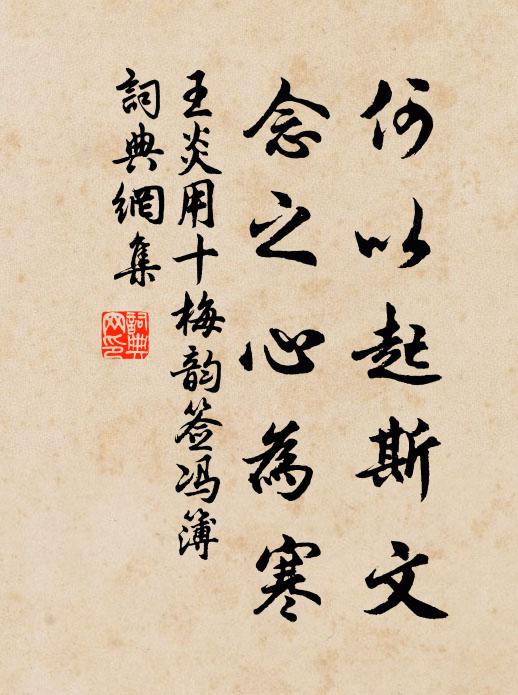 何以起斯文
念之心為寒
王炎用十梅韵签冯簿
詞典網集
詞典
网印